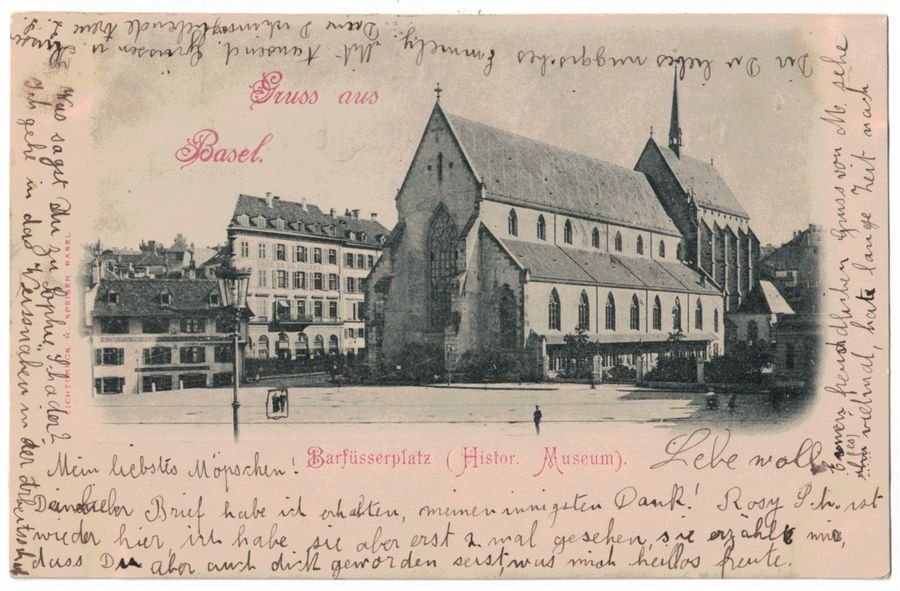 Gruss aus
Basel.
Barfüsserplatz (Histor. Museum).
Mein liebstes Möpschen!
Dein lieber Brief habe ich erhalten, meinen innigsten Dank! Rosy Sch. ist
wieder hier, ich habe sie aber erst 2 mal gesehen, sie erzählte mir,
dass Du aber auch dick geworden seist, was mich heillos freute.
Lebe wohl
Was sagst Du zu Sophie Schader?
Ich gehe in das Versonahen in der Arbeitsschul
Du Du liebes muggisches Emmely.
Mit tausend Grüssen u.
Deine Dich
liebende treue
Einen freundlichen Gruss von M. sehe
vielmal, hatte lange Zeit nach
LICHTDRUCK SPEISER BASEL